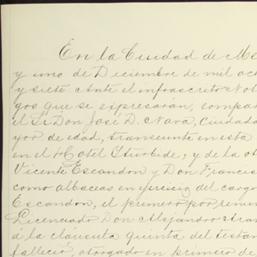 En la Ciudad de Me
y uno de Diciembre de mil och
y siete ante el infrascrito Not
gos que se espresarán, compar
el Sr Don José D. Nava, Ciudada
yor de edad, transeunte en esta
en el Hotel Iturbide, y de la ot
Vicente Escandon y Don Francis
como albaceas en ejercicio del cargo
Escandon, el primero por renun
Licenciado Don Alejandro Aran
á la cláusula quinta del testam
falleció, otorgado en primero de